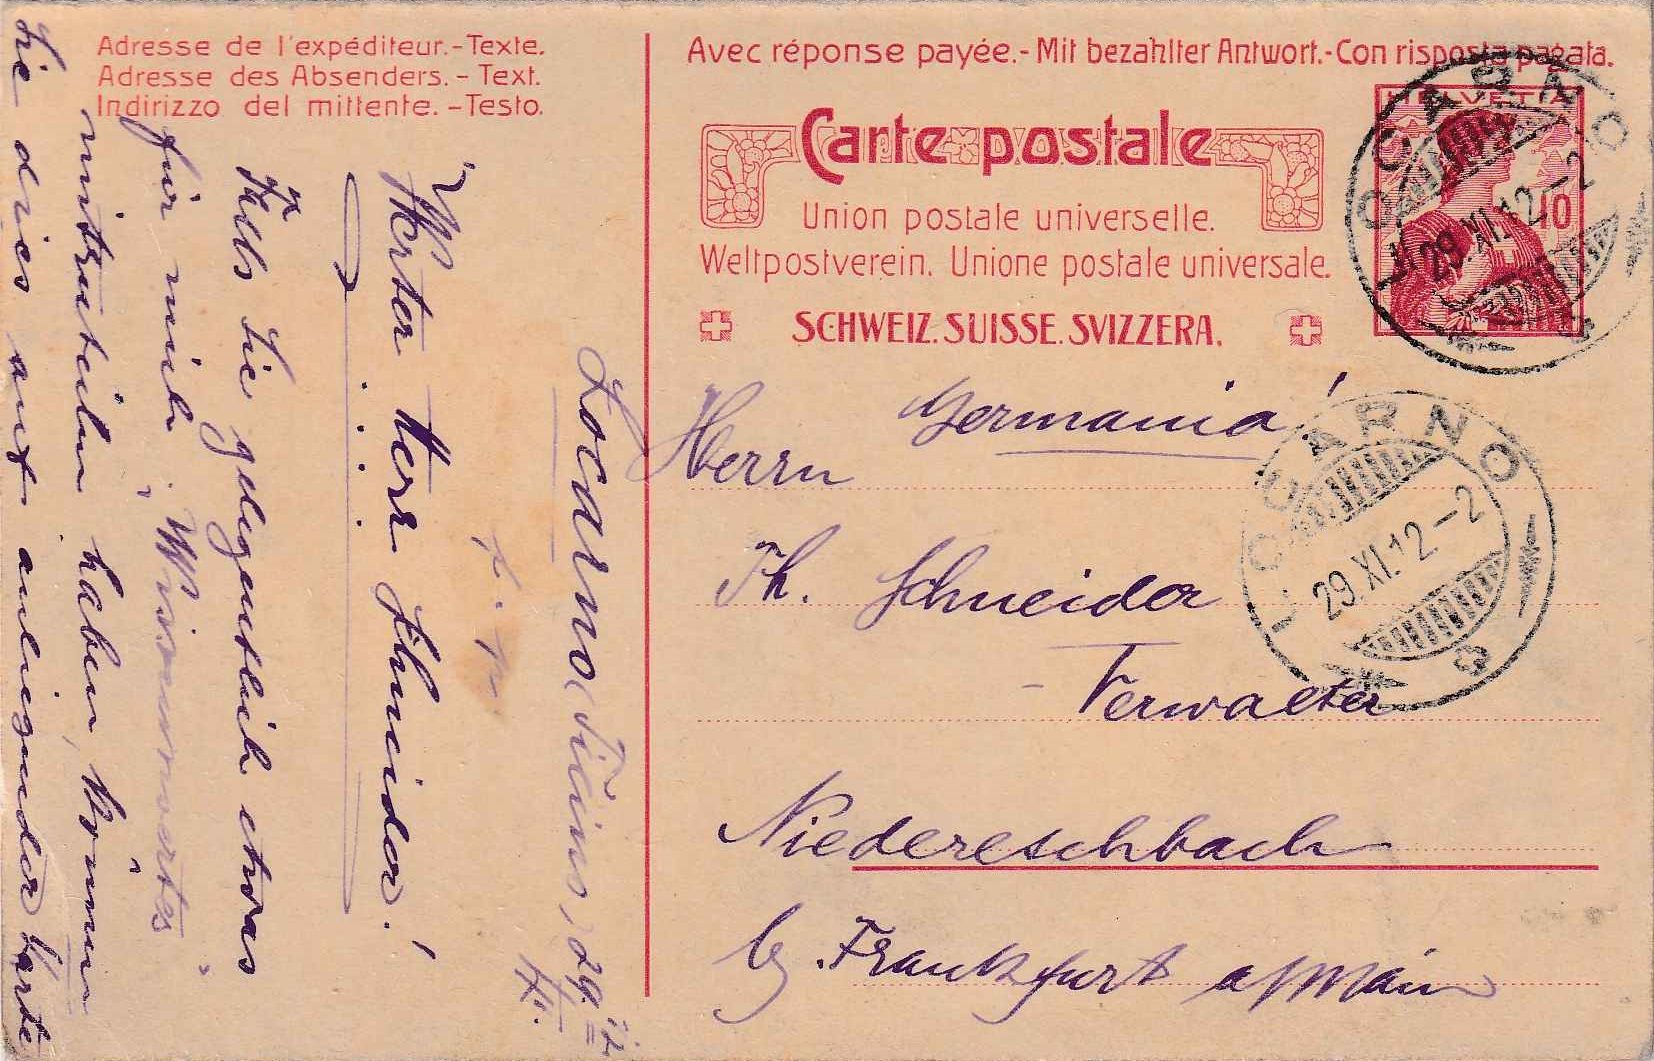 Adresse de l'expéditeur.-Texte.
Adresse des Absenders.- Text.
Indirizzo del mittente.-Testo.
Avec réponse payée.- Mit bezahlter Antwort.-Con risposta pagata.
Carte postale
Union postale universelle.
Weltpostverein. Unione postale universale.
SCHWEIZ. SUISSE. SVIZZERA.
HELVETIA
10
LOCARNO
29.XI.12-2
LOCARNO
29.XI.12-2
Germania!
Herrn
Th. Schneider
Verwalter
Niedereschbach
b/ Frankfurt a/Main
Locarno (Ticino), 29.
Werter Herr Schneider!
Falls Sie gelegentlich etwas
für mich Wissenswertes
mitzuteilen haben, können
Sie dies auf anliegender Karte